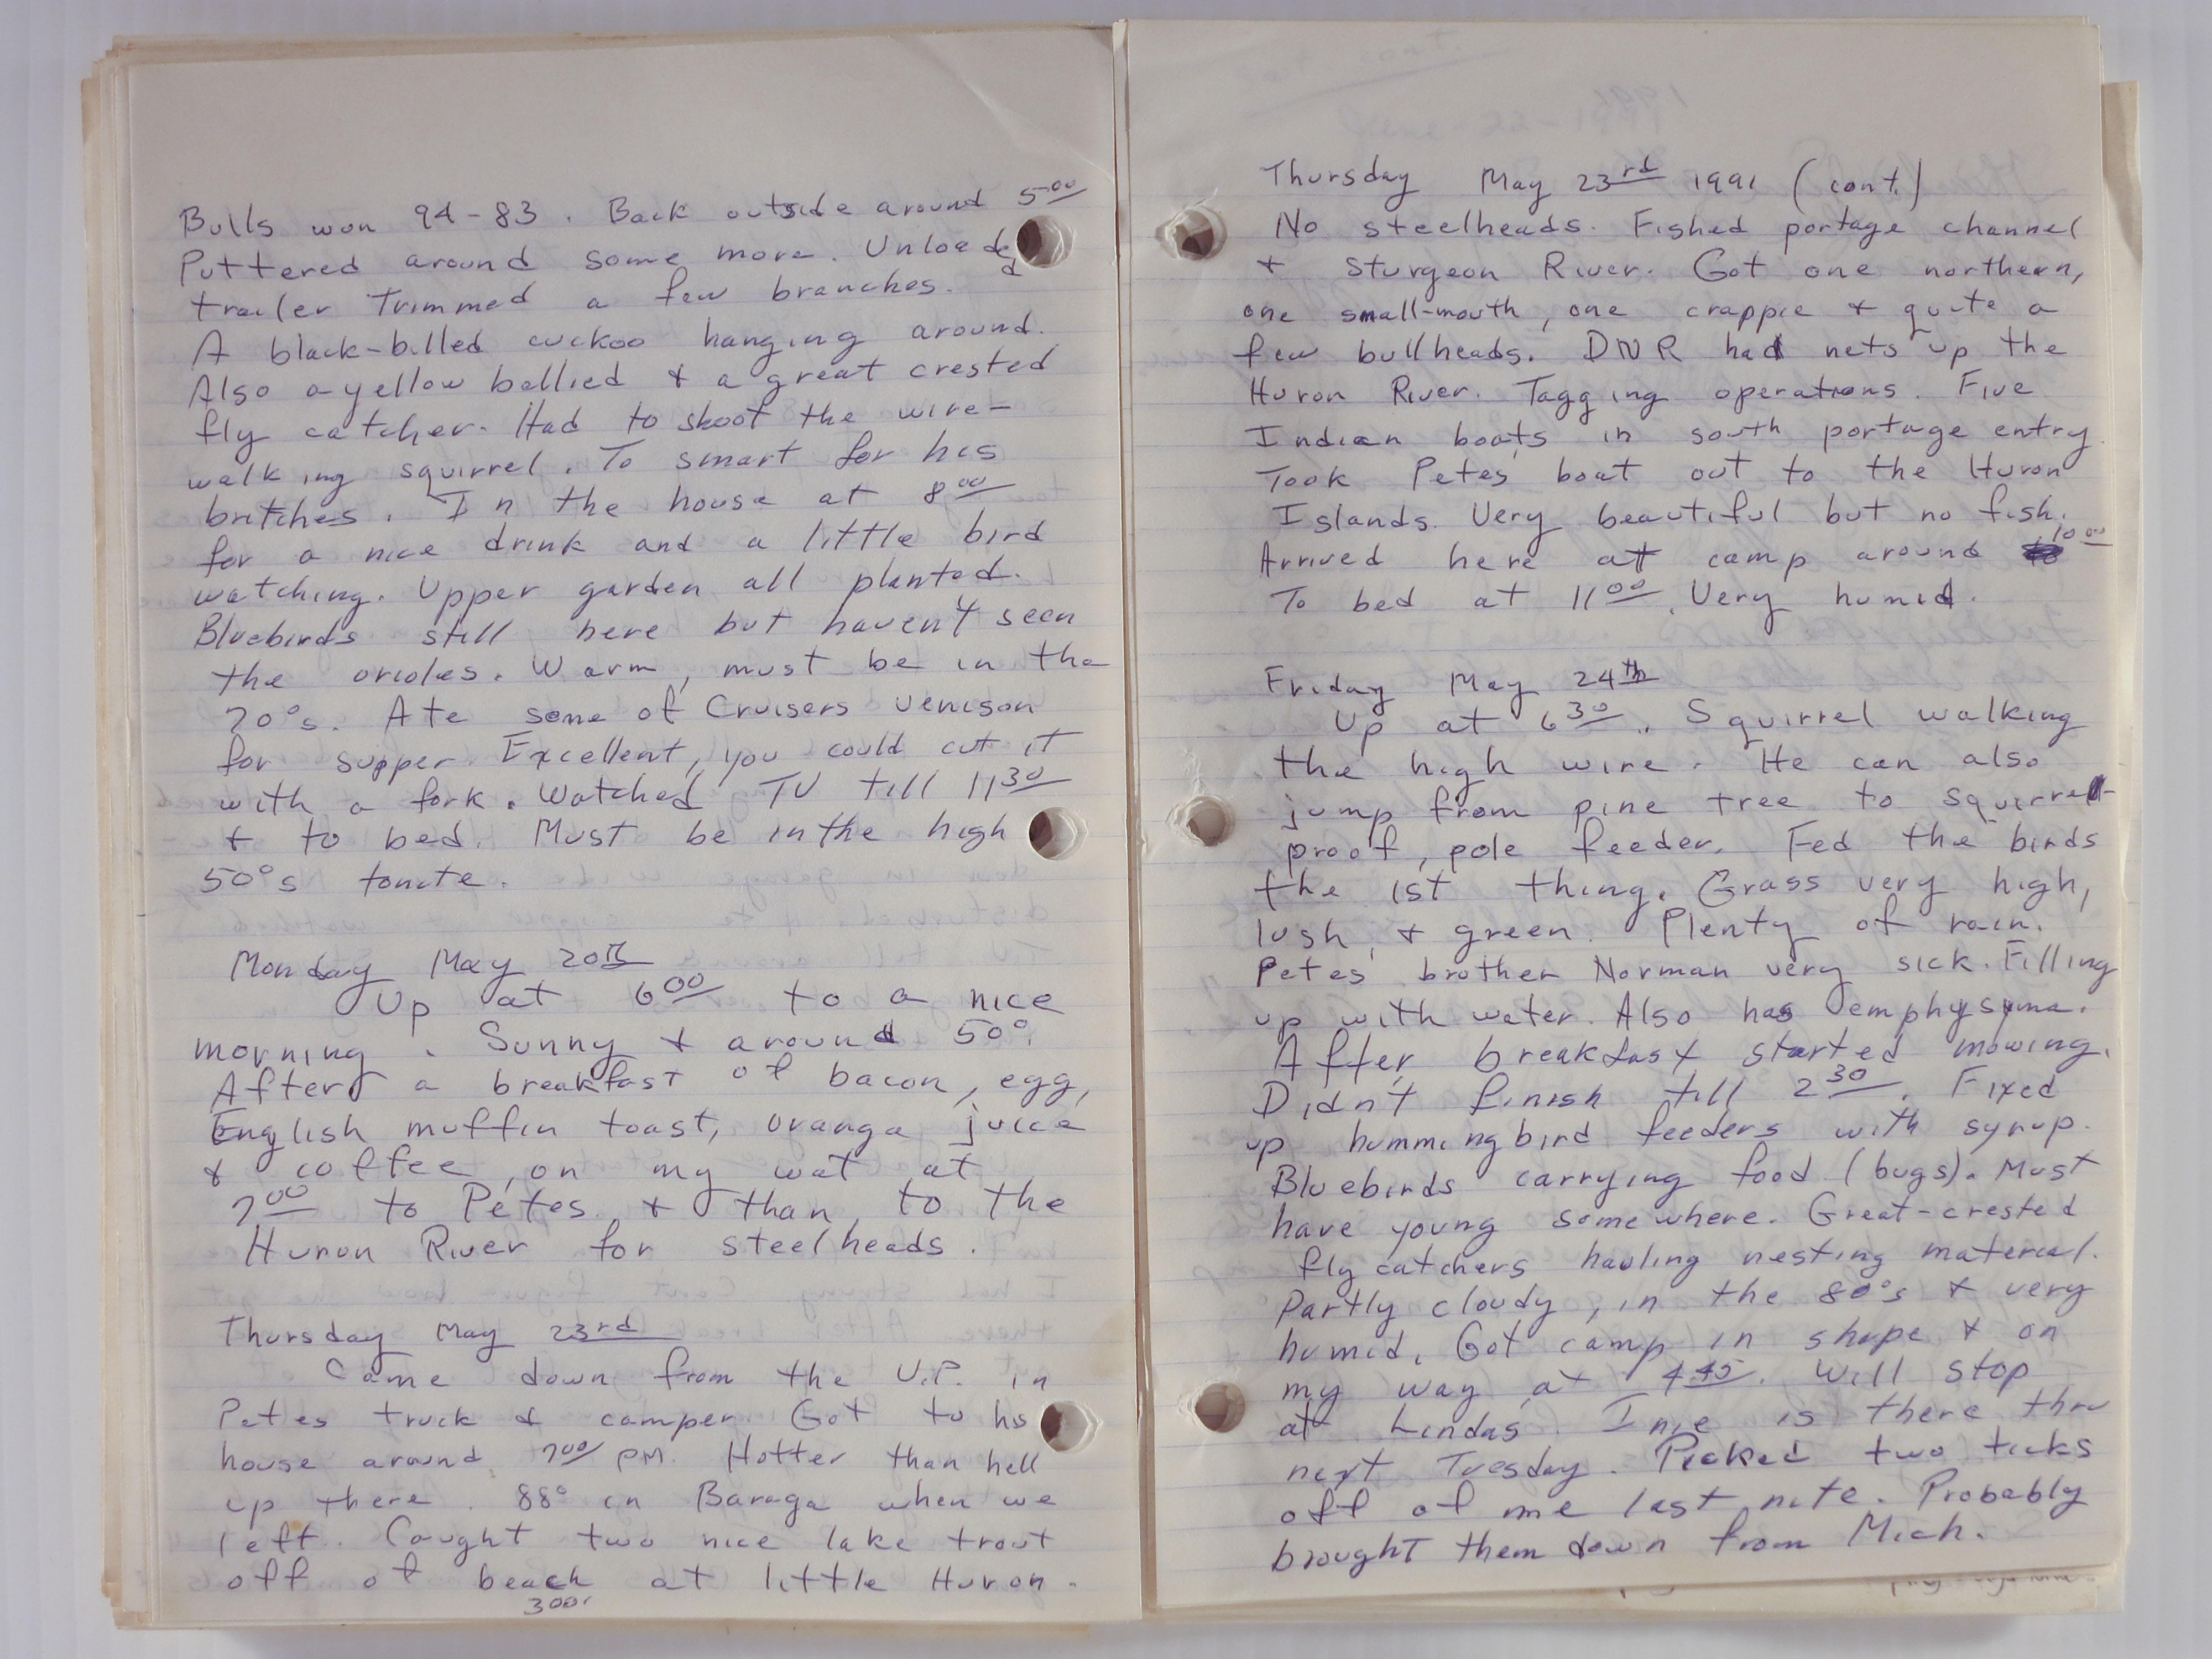 Bulls won 94-83. Back outside around 5⁰⁰
Puttered around some more. Unloaded
trailer Trimmed a few branches.
A black-billed cuckoo hanging around.
Also a yellow bellied & a great crested
fly catcher. Had to shoot the wire-
walking squirrel. To smart for his
britches. In the house at 8⁰⁰
for a nice drink and a little bird
watching. Upper garden all planted.
Bluebirds still here but haven't seen
the orioles. Warm, must be in the
70°s. Ate some of Cruisers venison
for supper. Excellent, you could cut it
with a fork. Watched TV till 11³⁰
& to bed. Must be in the high
50°s tonite.
Monday May 20th
Up at 6⁰⁰ to a nice
morning. Sunny & around 50°.
After a breakfast of bacon, egg,
English muffin toast, orange juice
& coffee, on my wat at
7⁰⁰ to Petes & than to the
Huron River for steelheads.
Thursday May 23rd
Came down from the U.P. in
Petes truck & camper. Got to his
house around 7⁰⁰ PM. Hotter than hell
up there. 88° in Baraga when we
left. Caught two nice lake trout
off of beach at little Huron.
300'
Thursday May 23rd 1991 (cont.)
No steelheads. Fished portage channel
& Sturgeon River. Got one northern,
one small-mouth, one crappie & quite a
few bullheads. DNR had nets up the
Huron River. Tagging operations. Five
Indian boats in south portage entry.
Took Petes boat out to the Huron
Islands. Very beautiful but no fish.
Arrived here at camp around 10⁰⁰
To bed at 11⁰⁰. Very humid.
Friday May 24th
Up at 6³⁰. Squirrel walking
the high wire. He can also
jump from pine tree to squirrel-
proof, pole feeder. Fed the birds
the 1st thing. Grass very high,
lush, & green. Plenty of rain.
Petes brother Norman very sick. Filling
up with water. Also has emphysyma.
After breakfast started mowing.
Didn't finish till 2³⁰. Fixed
up hummingbird feeders with syrup.
Bluebirds carrying food (bugs). Must
have young somewhere. Great-crested
fly catchers hauling nesting material.
Partly cloudy, in the 80°s & very
humid. Got camp in shape & on
my way at 4⁴⁵. Will stop
at Lindas. Inie is there thru
next Tuesday. Picked two ticks
off of me last nite. Probably
brought them down from Mich.